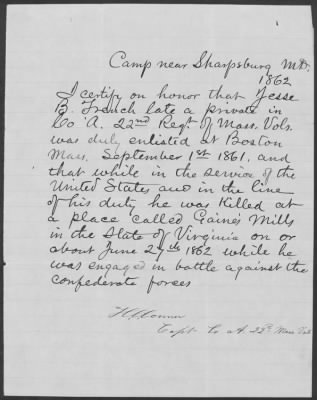 Camp near Sharpsburg Md.
1862
I certify on honor that Jesse
B. French late a private in
Co "A. 22nd Regt. of Mass. Vols.
was duly enlisted at Boston
Mass. September 1st 1861, and
that while in the service of the
United States and in the line
of his duty he was Killed at
a place called Gaines Mills
in the State of Virginia on or
about June 27th 1862 while he
was engaged in battle against the
confederate forces
Capt Co A. 22d Mass Vols